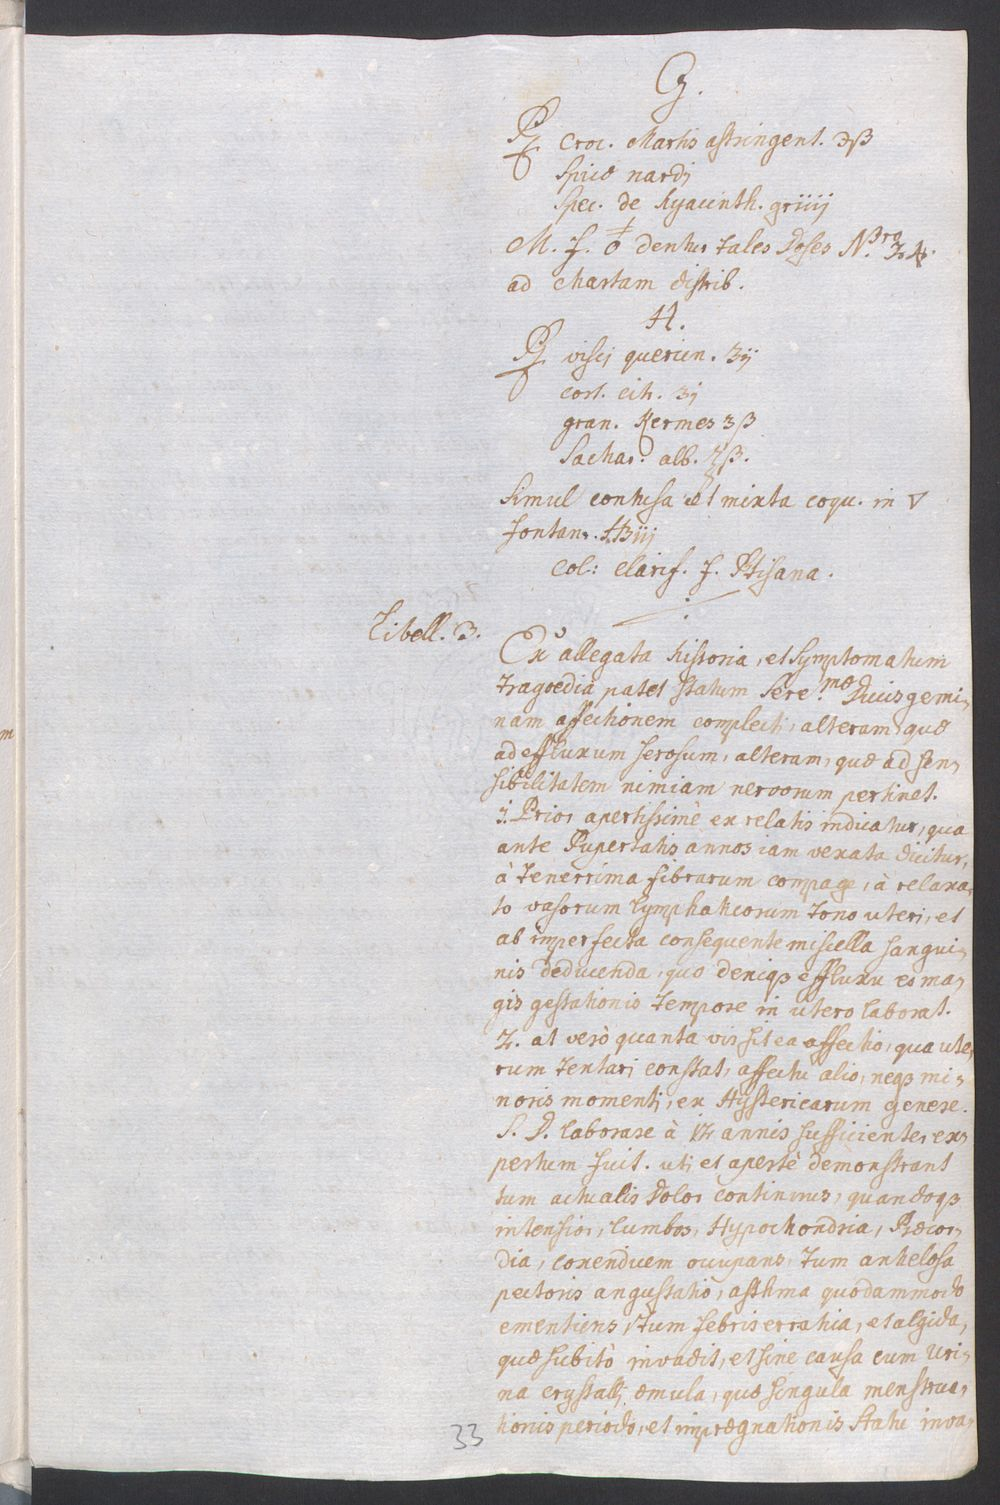 G.
℞ Croc. Martis astringent. ʒβ
Spicæ nardi
Spec. de Hyacinth. gr iiij
M. f. dentur tales Doses Nro 24.
ad Chartam distrib.
H.
℞ visci quercin. ʒij
cort. cit. ʒj
gran. Kermes ʒβ
Sachar. alb. ℥β.
Simul contusa et mixta coqu. in ▽
fontan. ℔iij
Col: clarif. f. Ptisana.
Libell. 3.
Ex allegata historia, et Symptomatum
tragoedia patet statum Sere.mæ Ducis gemi-
nam affectionem complecti, alteram quæ
ad effluxum serosum, alteram, quæ ad sen-
sibilitatem nimiam nervorum pertinet.
1. Prior apertissimè ex relatis indicatur, qua
ante Pupertatis annos iam vexata dicitur,
à tenerrima fibrarum compage, à relaxa-
to vasorum lymphaticorum tono uteri, et
ab imperfecta consequente miscella sangui-
nis deducenda, quo deniqȝ effluxu eo ma-
gis gestationis tempore in utero laborat.
2. at verò quanta vis sit ea affectio, qua ute-
rum tentari constat, affectu alio, neqȝ mi-
noris momenti, ex Hystericarum genere.
S. D. laborare à 12 annis sufficienter ex-
pertum fuit. uti et apertè demonstrant
tum actualis Dolor continuus, quandoqȝ
intensior, lumbos, Hypochondria, Præcor-
dia, conenduem occupans, tum anhelosa
pectoris angustatio, asthma quodammodo
ementiens, tum febris erratica, et algida,
quæ subitò invadit, et sine causa cum Uri-
na crystalli æmula, quæ singula menstrua-
tionis periodo, et imprægnationis statu inva-
33